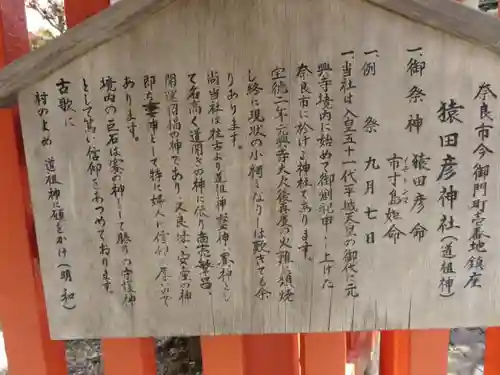 奈良市今御門町壱番地鎮座
猿田彦神社(道祖神)
一、御祭神 猿田彦命
市寸島姫命
一、例祭 九月七日
一、当社は人皇五十一代平城天皇の御代に元
興寺境内に始めて御創祀申し上げた
奈良市に於ける神社であります。
宝徳二年元興寺大火後再度の火難に類焼
し終に現状の小祠となりしは歎きても余
りあります。
尚当社は往古より道祖神塞神賽神とし
て名高く道開きの神に依り商売繁昌、
開運招福の神であり、又良縁、安産の神
即ち妻神として特に婦人に信仰厚いので
あります。
境内の巨石は賽の神として勝りの守護神
として篤い信仰をあつめております。
古歌に
村のよめ 道祖神に願をかけ(明和)